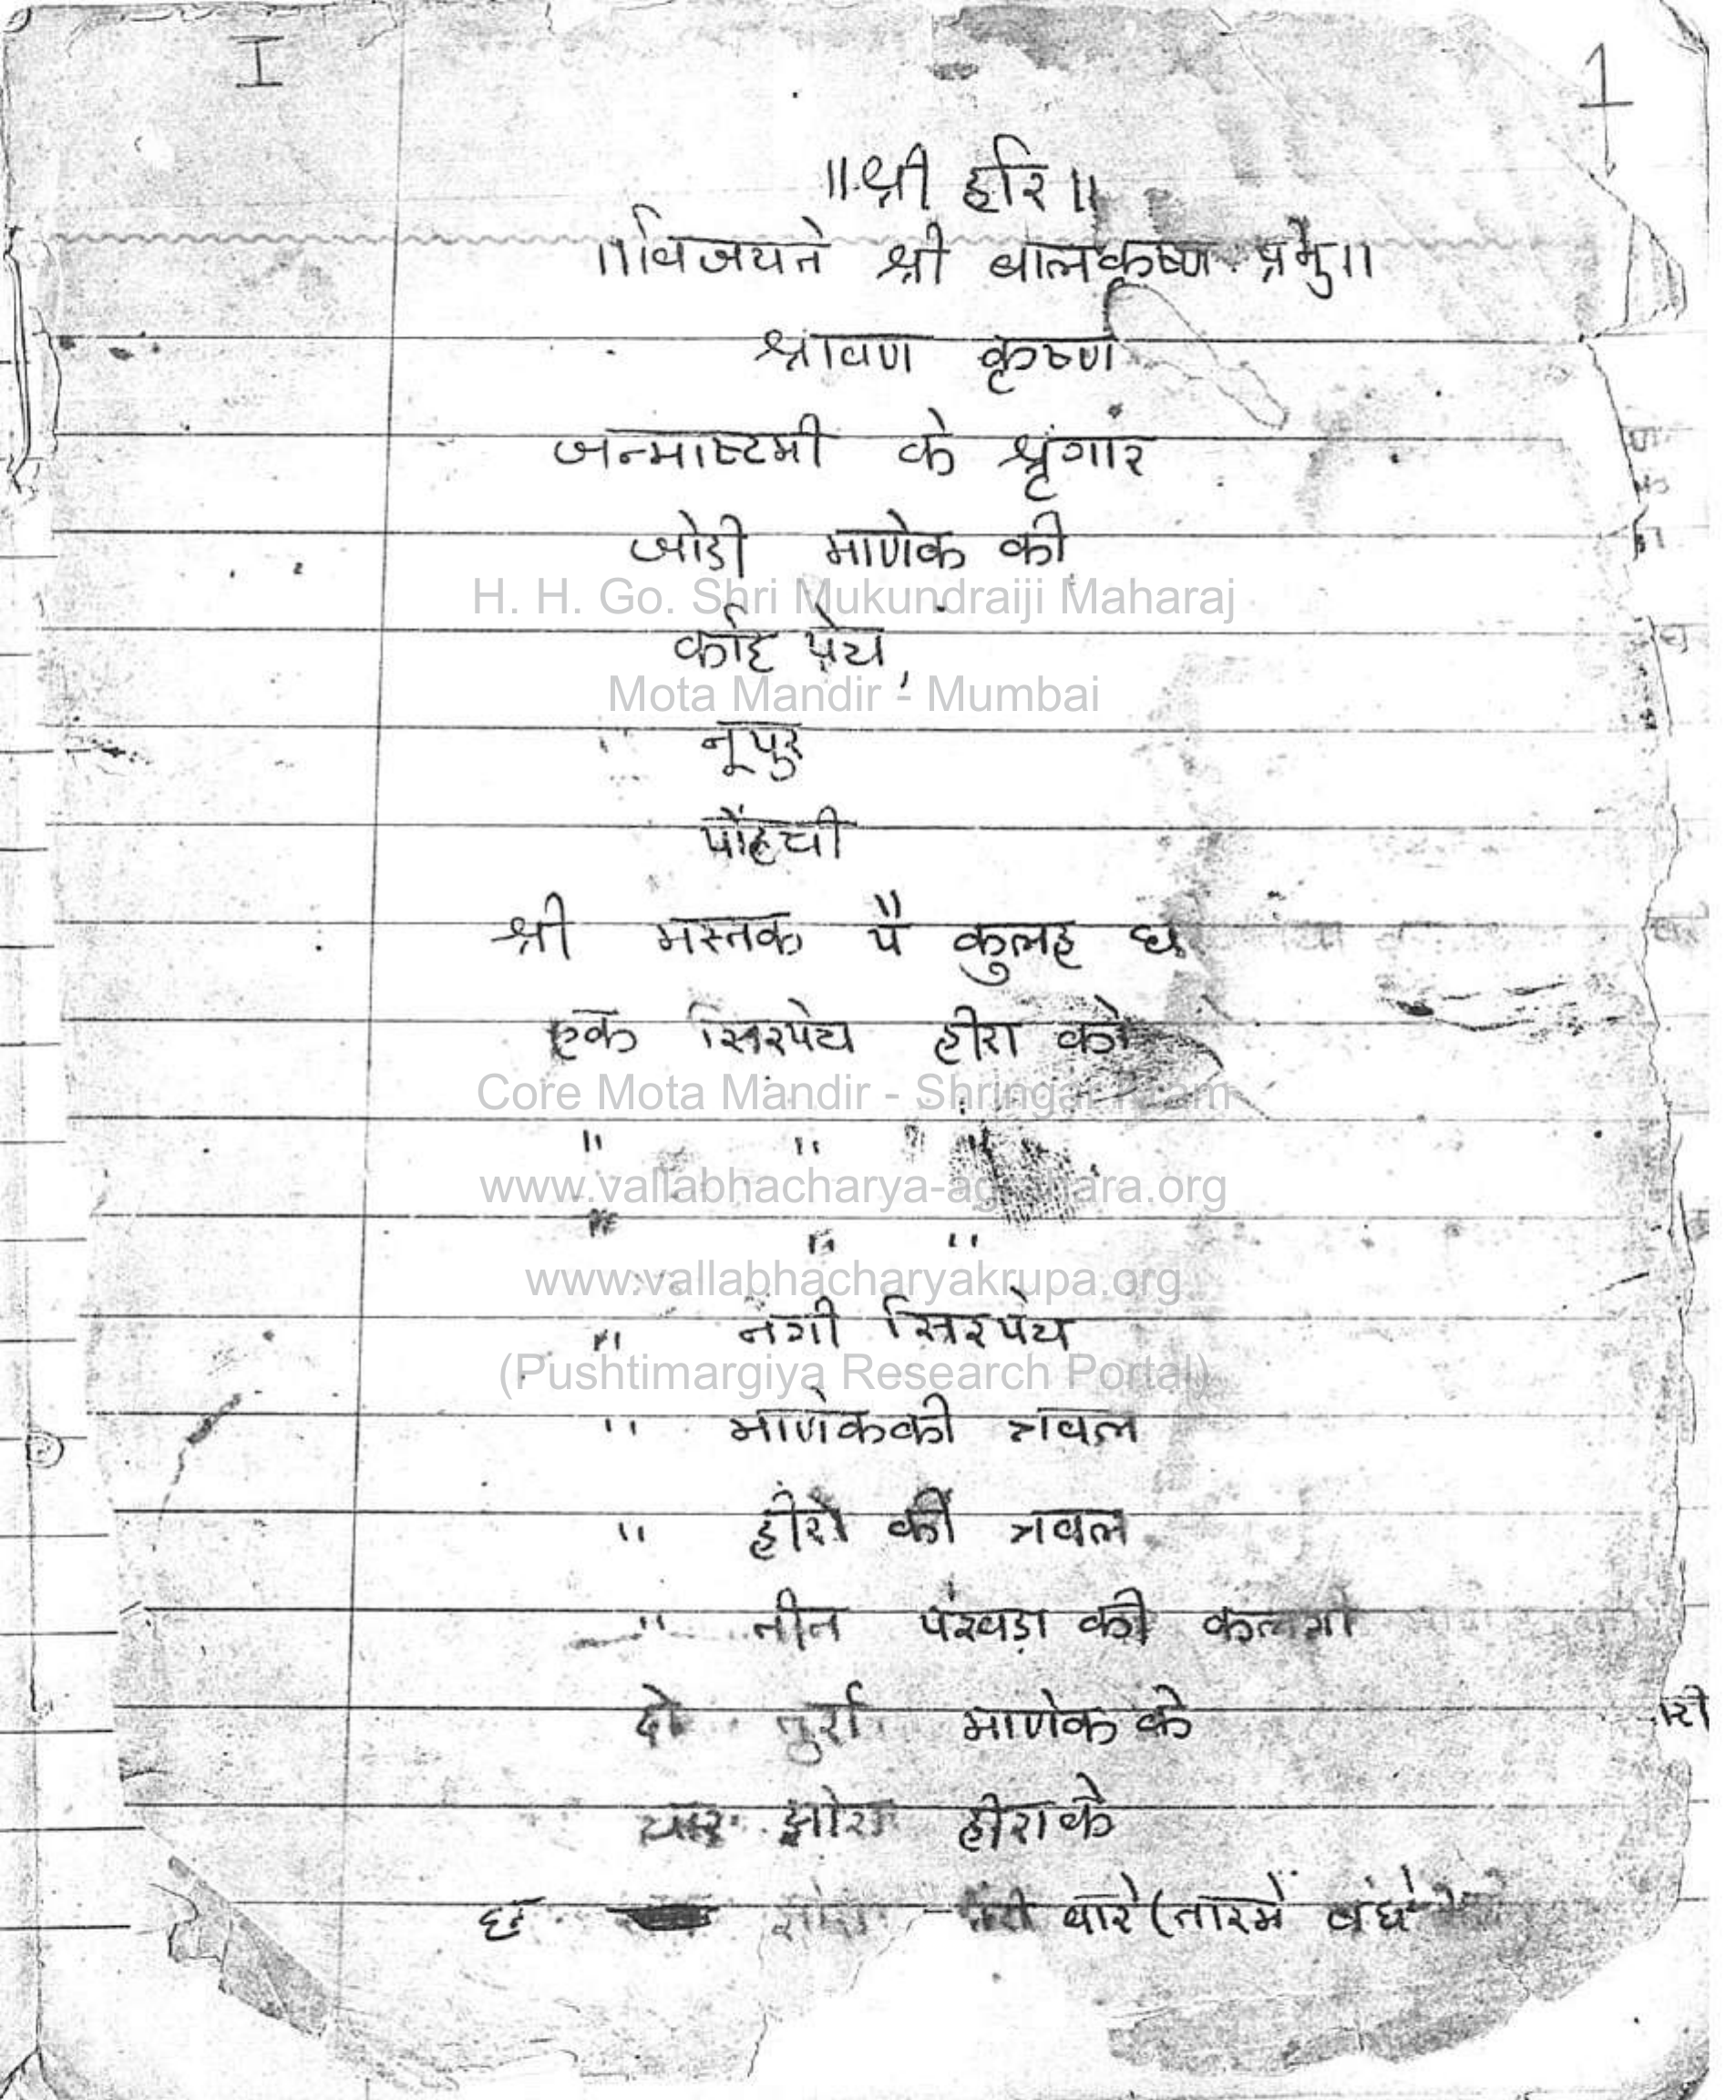 I 1
॥श्री हरि॥
॥विजयते श्री बालकृष्ण प्रभु॥
श्रावण कृष्ण
जन्माष्टमी के श्रृंगार
जोडी माणेक की
H. H. Go. Shri Mukundraiji Maharaj
कटि पेच
Mota Mandir - Mumbai
नूपुर
पोंहची
श्री मस्तक पै कुलह
एक सिरपेच हीरा को
Core Mota Mandir - Shringar
" " "
www.vallabhacharya-agrapara.org
" " "
www.vallabhacharyakrupa.org
" नंगी सिरपेच
(Pushtimargiya Research Portal)
" माणेककी त्रवल
" हीरा की त्रवल
" तीन पंखड़ा की कलगी
दो तुर्रा माणेक के
चार झोरा हीराके
छ वारे (तारमें बंधे